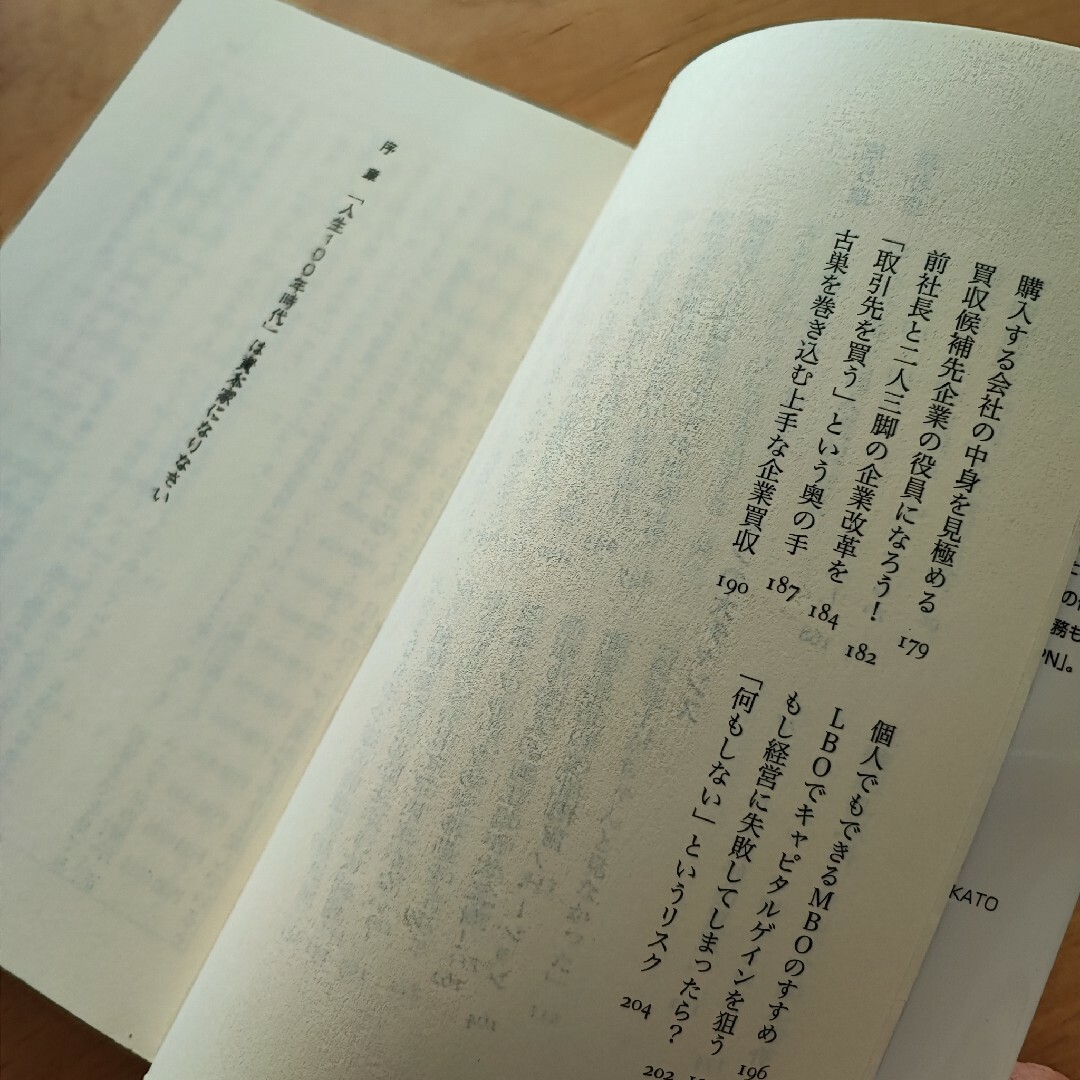 購入する会社の中身を見極める 179
買収候補先企業の役員になろう! 182
前社長と二人三脚の企業改革を 184
「取引先を買う」という奥の手 187
古巣を巻き込む上手な企業買収 190
個人でもできるMBOのすすめ 196
LBOでキャピタルゲインを狙う
もし経営に失敗してしまったら? 202
「何もしない」というリスク 204
序章 「人生100年時代」は資本家になりなさい
務も
PN」。
KATO